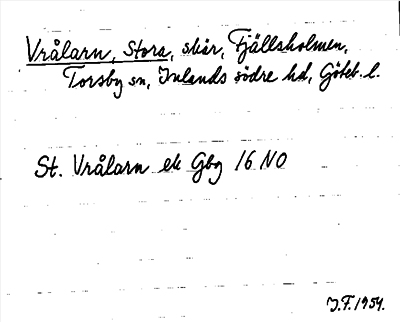 Vrålarn, Stora, skär, Fjällsholmen,
Torsby sn, Inlands södre hd, Göteb. l.
St. Vrålarn ek Gbg 16 NO
J.F. 1954.